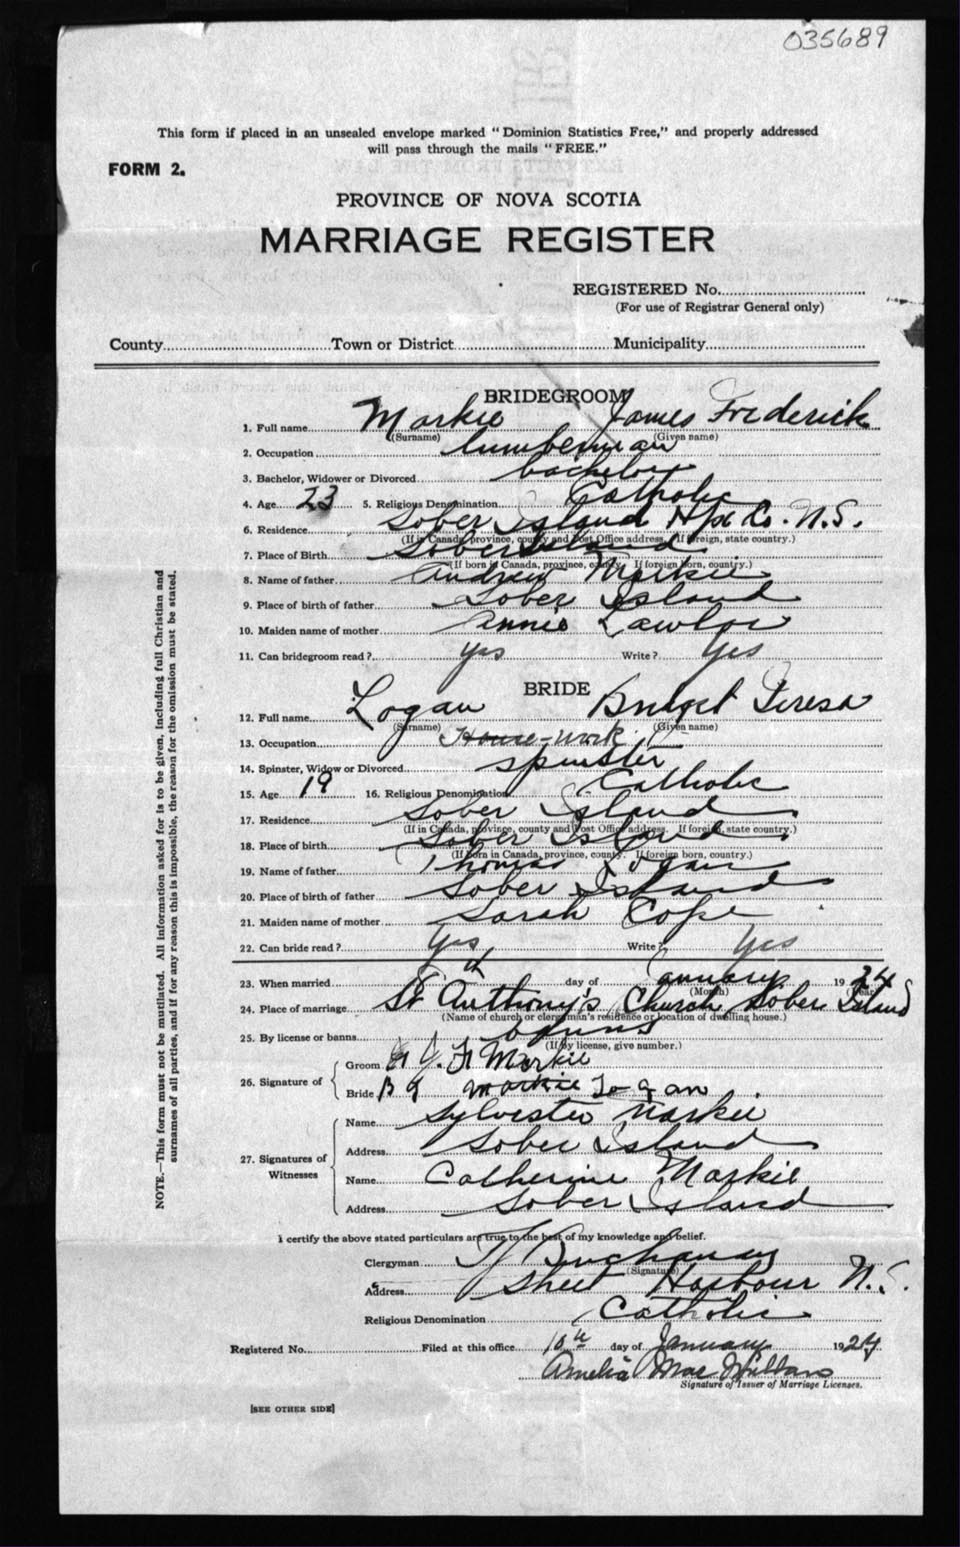 035689
This form if placed in an unsealed envelope marked "Dominion Statistics Free," and properly addressed
will pass through the mails "FREE."
FORM 2.
PROVINCE OF NOVA SCOTIA
MARRIAGE REGISTER
REGISTERED No.
(For use of Registrar General only)
County Town or District Municipality
BRIDEGROOM
1. Full name Markie James Frederick
(Surname) (Given name)
2. Occupation lumberman
3. Bachelor, Widower or Divorced bachelor
4. Age 23 5. Religious Denomination Catholic
6. Residence Sober Island Hfx Co. N.S.
(If in Canada, province, county and Post Office address. If foreign, state country.)
7. Place of Birth Sober Island
(If born in Canada, province, county. If foreign born, country.)
8. Name of father Andrew Markie
9. Place of birth of father Sober Island
10. Maiden name of mother Annie Lawlor
11. Can bridegroom read? yes Write? Yes
BRIDE
12. Full name Logan Bridget Teresa
(Surname) (Given name)
13. Occupation House-work
14. Spinster, Widow or Divorced spinster
15. Age 19 16. Religious Denomination Catholic
17. Residence Sober Island
(If in Canada, province, county and Post Office address. If foreign, state country.)
18. Place of birth Sober Island
(If born in Canada, province, county. If foreign born, country.)
19. Name of father Thomas Logan
20. Place of birth of father Sober Island
21. Maiden name of mother Sarah Cope
22. Can bride read? Yes Write? Yes
23. When married day of January 1924
(Month) (Year)
24. Place of marriage St Anthony's Church Sober Island
(Name of church or clergyman's residence or location of dwelling house.)
25. By license or banns banns
(If by license, give number.)
26. Signature of
Groom J. F. Markie
Bride B Markie Logan
27. Signatures of Witnesses
Name Sylvester Markie
Address Sober Island
Name Catherine Markie
Address Sober Island
I certify the above stated particulars are true to the best of my knowledge and belief.
Clergyman Buchanan
(Signature)
Address Sheet Harbour N.S.
Religious Denomination Catholic
Registered No. Filed at this office 10th day of January 1924
Amelia
Signature of Issuer of Marriage Licenses.
[SEE OTHER SIDE]
NOTE.—This form must not be mutilated. All information asked for is to be given, including full Christian and
surnames of all parties, and if for any reason this is impossible, the reason for the omission must be stated.